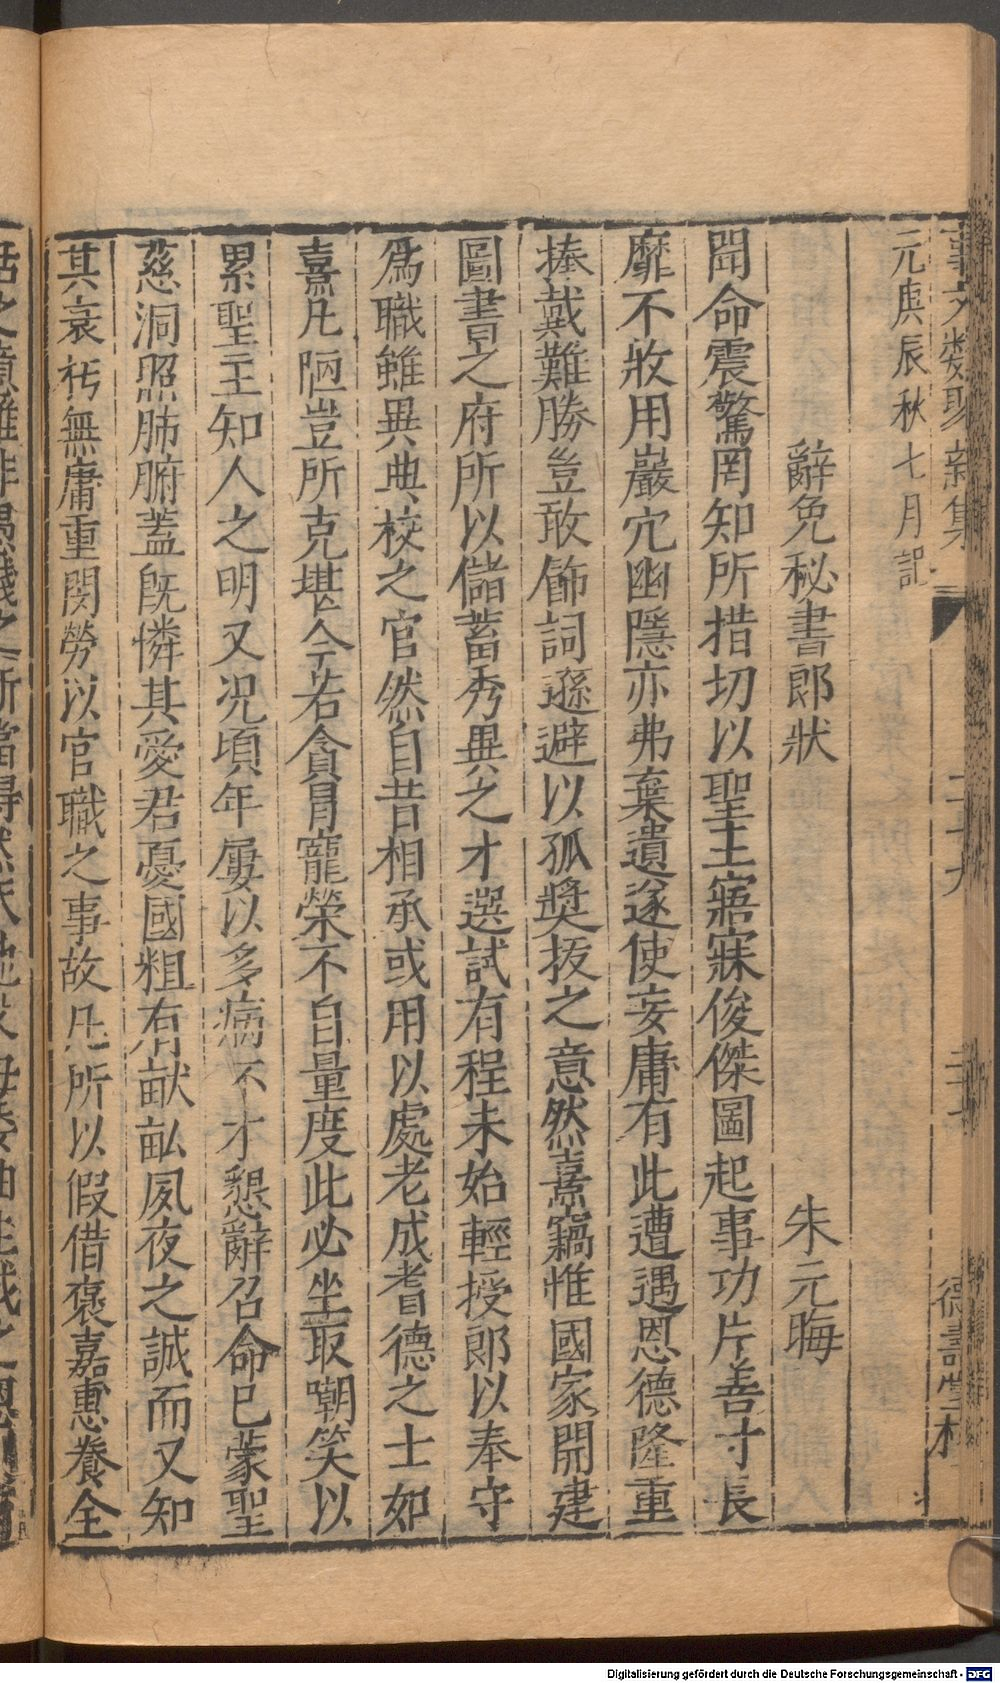 事文類聚新集
德壽堂梓
元庚辰秋七月記
辭免秘書郎狀 朱元晦
聞命震驚罔知所措切以聖主寤寐俊傑圖起事功片善寸長
靡不收用巖穴幽隱亦弗棄遺遂使妄庸有此遭遇恩德隆重
捧戴難勝豈敢飾詞遜避以孤奬拔之意然熹竊惟國家開建
圖書之府所以儲蓄秀異之才選試有程未始輕授郎以奉守
爲職雖異典校之官然自昔相承或用以處老成耆德之士如
熹凡陋豈所克堪今若貪冒寵榮不自量度此必坐取嘲笑以
累聖主知人之明又况頃年屢以多病不才懇辭召命已蒙聖
慈洞照肺腑蓋旣憐其愛君憂國粗有畎畝夙夜之誠而又知
其衰朽無庸重閔勞以官職之事故凡所以假借褒嘉惠養全
Digitalisierung gefördert durch die Deutsche Forschungsgemeinschaft - DFG